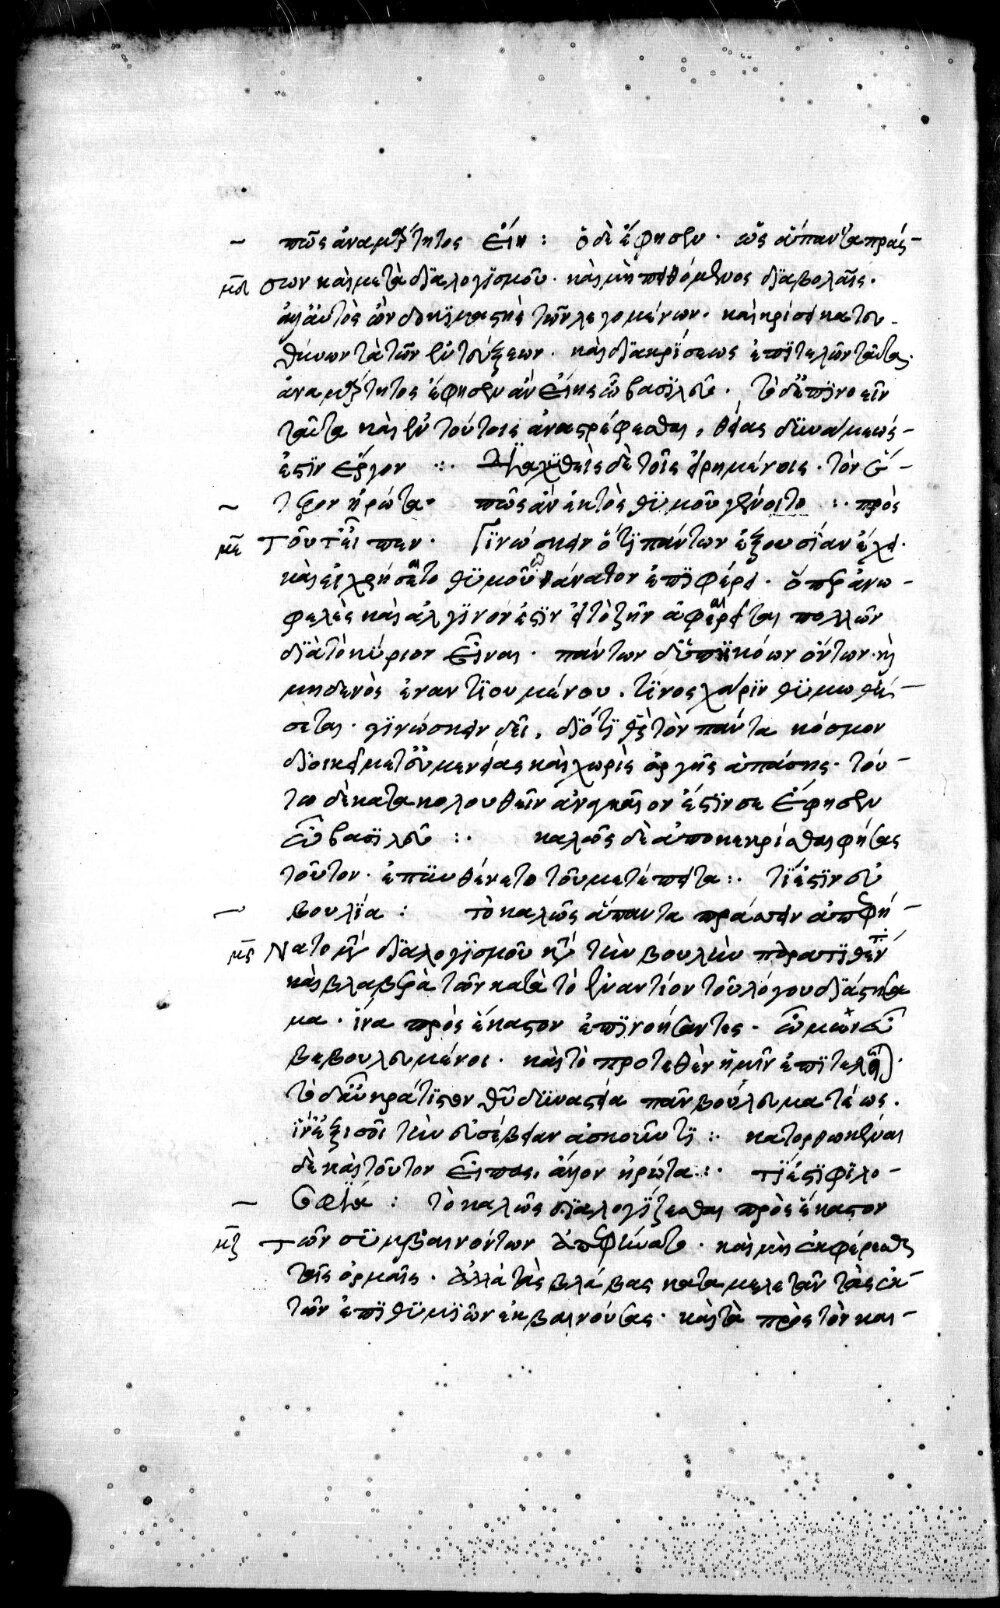 πῶς ἀναμάρτητος εἴη : ὁ δὲ ἔφησεν · ὡς ἅπαντα πράσ-
μδ σων καὶ μετὰ διαλογισμοῦ · καὶ μὴ πειθόμενος διαβολαῖς ·
ἀλλ' αὐτὸς ὢν δοκιμαστὴς τῶν λεγομένων · καὶ κρίσει κατευ-
θύνων τὰ τῶν ἐντεύξεων · καὶ διακρίσεως ἐπιτελῶν ταῦτα ·
ἀναμάρτητος ἔφησεν ἂν εἴης ὦ βασιλεῦ · τὸ δ' ἐπινοεῖν
ταῦτα καὶ ἐν τούτοις ἀναστρέφεσθαι, θείας δυνάμεώς
ἐστιν ἔργον :· διαχυθεὶς δὲ τοῖς εἰρημένοις · τὸν ἕ-
τερον ἠρώτα · πῶς ἂν ἐκτὸς θυμοῦ γένοιτο :· πρὸς
με τοῦτ' εἶπεν · Γινώσκειν ὅτι πάντων ἐξουσίαν ἔχει ·
καὶ εἰ χρήσαιτο θυμοῦ θάνατον ἐπιφέρει · ὅπερ ἀνω-
φελὲς καὶ ἀλγινόν ἐστιν εἰ τὸ ζῆν ἀφαιρεῖται πολλῶν
διὰ τὸ κύριον εἶναι · πάντων δ' ὑπηκόων ὄντων · κ
μηδενὸς ἐναντιουμένου, τίνος χάριν θυμωθή-
σεται · γινώσκειν δεῖ, διότι θς τὸν πάντα κόσμον
διοικεῖ μετ' εὐμενείας καὶ χωρὶς ὀργῆς ἁπάσης · τού-
τω δὲ κατακολουθεῖν ἀναγκαῖόν ἐστι σε ἔφησεν
ὦ βασιλεῦ :· καλῶς δὲ ἀποκεκρίσθαι φήσας
τοῦτον · ἐπυνθάνετο τοῦ μετέπειτα :· τί ἐστιν εὐ
βουλία : τὸ καλῶς ἅπαντα πράσσειν ἀπεφή-
μς νατο μετὰ διαλογισμοῦ κατὰ τὴν βουλὴν παρατιθέντα
καὶ βλαβερὰ τῶν κατὰ τὸ ἐναντίον τοῦ λόγου διάστη
μα · ἵνα πρὸς ἕκαστον ἐπινοήσαντες · ὦμεν εὖ
βεβουλευμένοι · καὶ τὸ προτεθὲν ἡμῖν ἐπιτελῆται ·
τὸ δ' αὖ κράτιστον θῦ δυναστεία πᾶν βούλευμα τέως ·
ἵν' ἕξει σοι τὴν εὐσέβειαν ἀσκοῦντι :· κατορθωκέναι
δὲ καὶ τοῦτον εἶπας, ἄλλον ἠρώτα :· τί ἐστι φιλο-
σοφία : τὸ καλῶς διαλογίζεσθαι πρὸς ἕκαστον
μζ τῶν συμβαινόντων ἀπεφήνατο · καὶ μὴ ἐκφέρεσθαι
ταῖς ὁρμαῖς · ἀλλὰ τὰς βλάβας καταμελετᾶν τὰς ἐκ
τῶν ἐπιθυμιῶν ἐκβαινούσας · καὶ τὰ πρὸς τὸν και-